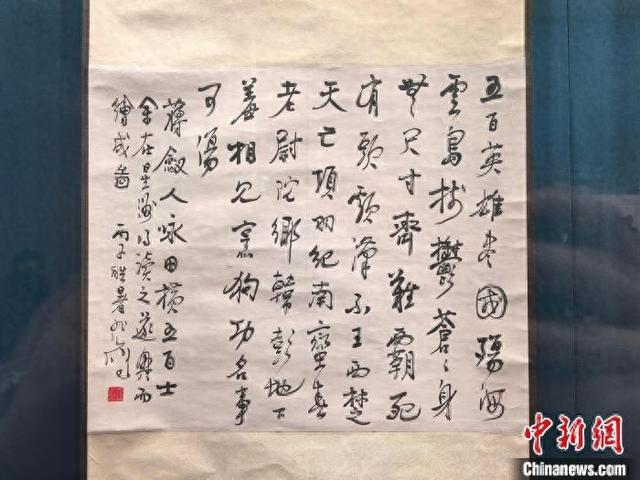 五百英雄盡國殤海
雲島樹鬱蒼蒼身
無尺寸齊難霸死
有頭顱漢不王西楚
天亡項羽紀南蠻春
老尉佗鄉韓彭地下
羞相見烹狗功名事
可傷
劔人咏田橫五百士
余在星洲得讀之遂興而
繪成啚 丙子酷暑
中新网
Chinanews.com